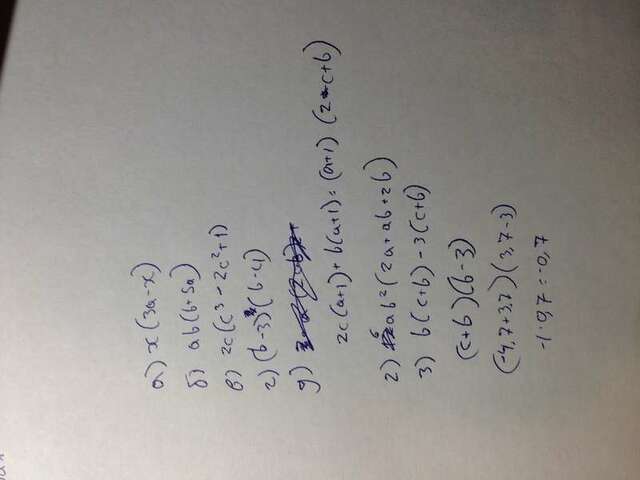 а) x(3a-x)
б) ab(b+5a)
в) 2c(c³-2c²+1)
г) (b-3)(b-c)
д)
2c(a+1)+b(a+1)=(a+1)(2c+b)
2) 6ab²(2a+ab+2b)
3) b(c+b)-3(c+b)
(c+b)(b-3)
(-4,7+3,7)(3,7-3)
-1·0,7=-0,7